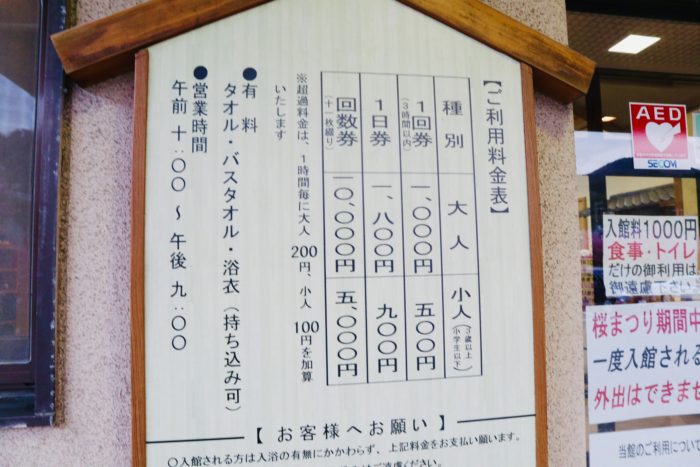 【ご利用料金表】
種別 大人 小人(3歳以上小学生以下)
1回券(3時間以内) 一、〇〇〇円 五〇〇円
1日券 一、八〇〇円 九〇〇円
回数券(十一枚綴り) 一〇、〇〇〇円 五、〇〇〇円
※超過料金は、1時間毎に大人 200円、小人 100円を加算
いたします
●有料
タオル・バスタオル・浴衣(持ち込み可)
●営業時間
午前 十:〇〇 ～ 午後 九:〇〇
【お客様へお願い】
〇入館される方は入浴の有無にかかわらず、上記料金をお支払い願います。
ご遠慮ください。
AED
SECOM
入館料1000円
食事・トイレ
だけの御利用は
御遠慮下さい
桜まつり期間中
一度入館される
外出はできませ
当館のご利用につい